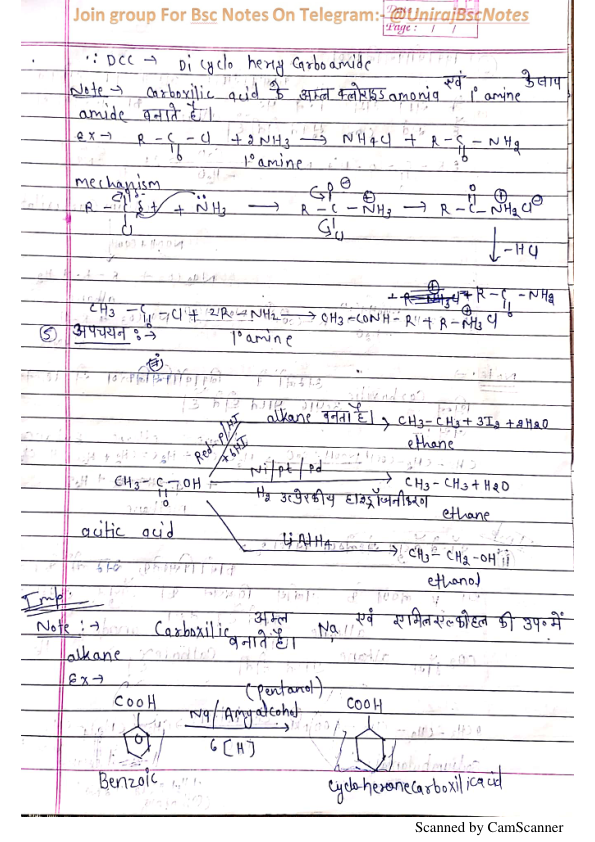 Join group For Bsc Notes On Telegram:- @UnirajBscNotes
Page: / /
∵ DCC → Di cyclo hexy Carboamide
Note → Carboxilic acid के अम्ल क्लोराइड amonia एवं 1° amine के साथ
amide बनाते है।
ex → R - C - Cl + 2NH3 → NH4Cl + R - C - NH2
O O
1° amine
mechanism
R - C + NH3 → R - C - NH3 → R - C - NH2Cl
↓ -HCl
R - C - NH2
O
CH3 - C - Cl + 2R - NH2 → CH3 - CONH - R + R - NH3Cl
(5) अपचयन :→ 1° amine
Red-P/HI
+6HI
alkane बनता है। → CH3-CH3 + 3I2 + 2H2O
ethane
CH3 - C - OH Ni/pt/Pd → CH3 - CH3 + H2O
O
H2 उत्प्रेरकीय हाइड्रोजनीकरण
ethane
acitic acid LiAlH4 → CH3 - CH2 - OH
ethanol
Imp.
Note :→ Carboxilic अम्ल Na एवं एमिलएल्कोहल की उप० में
alkane बनाते है।
Ex →
(pentanol)
COOH Na/Amyalcohol COOH
6[H]
Benzoic cyclohexanecarboxilicacid
Scanned by CamScanner